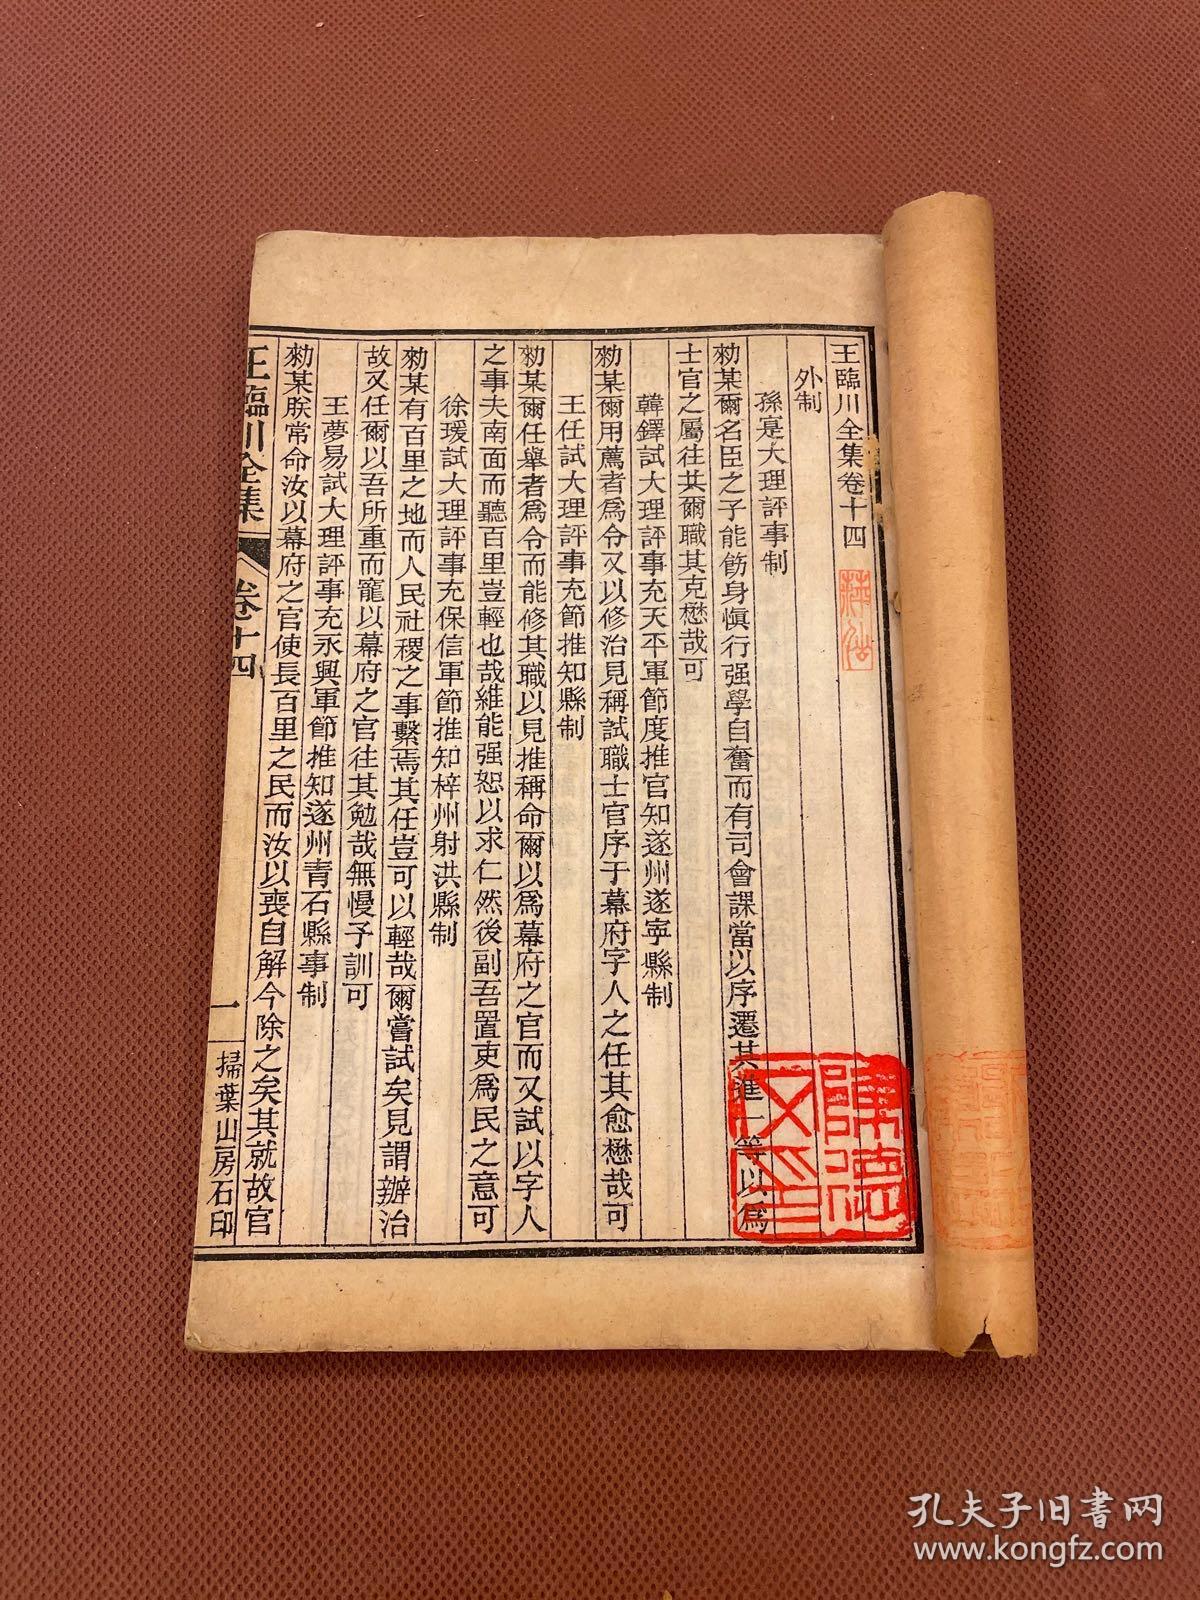 王臨川全集卷十四
外制
孫寔大理評事制
勑某爾名臣之子能飭身慎行强學自奮而有司會課當以序遷其進一等以爲
士官之屬往共爾職其克懋哉可
韓鐸試大理評事充天平軍節度推官知遂州遂寧縣制
勑某爾用薦者爲令又以修治見稱試職士官序于幕府字人之任其愈懋哉可
王任試大理評事充節推知縣制
勑某爾任舉者爲令而能修其職以見推稱命爾以爲幕府之官而又試以字人
之事夫南面而聽百里豈輕也哉維能强恕以求仁然後副吾置吏爲民之意可
徐瑗試大理評事充保信軍節推知梓州射洪縣制
勑某有百里之地而人民社稷之事繫焉其任豈可以輕哉爾嘗試矣見謂辦治
故又任爾以吾所重而寵以幕府之官往其勉哉無慢予訓可
王夢易試大理評事充永興軍節推知遂州青石縣事制
勑某朕常命汝以幕府之官使長百里之民而汝以喪自解今除之矣其就故官
王臨川全集
卷十四
一
掃葉山房石印
孔夫子旧书网
www.kongfz.com